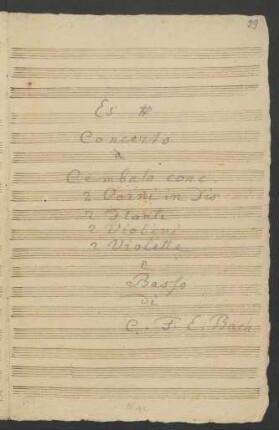 99
Es #
Concerto
a
Cembalo conc.
2 Corni in Dis
2 Flauti
2 Violini
2 Violette
e
Basso
di
C. F. E. Bach